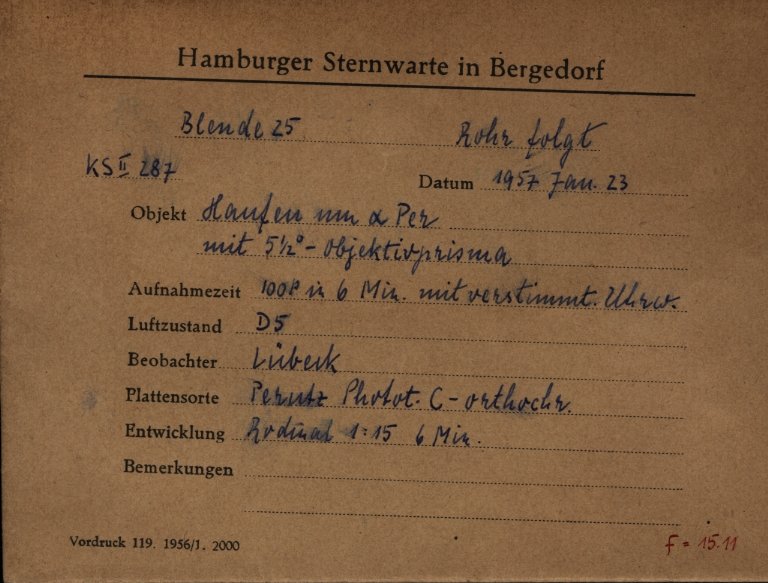 Hamburger Sternwarte in Bergedorf
Blende 25 Rohr folgt
KS II 287
Datum 1957 Jan. 23
Objekt Haufen um α Per
mit 5½° - Objektivprisma
Aufnahmezeit 100P in 6 Min. mit verstimmt. Uhrw.
Luftzustand D5
Beobachter Lübeck
Plattensorte Perutz Photot. C - orthochr.
Entwicklung Rodinal 1:15 6 Min.
Bemerkungen
Vordruck 119. 1956/1. 2000
f = 15.11